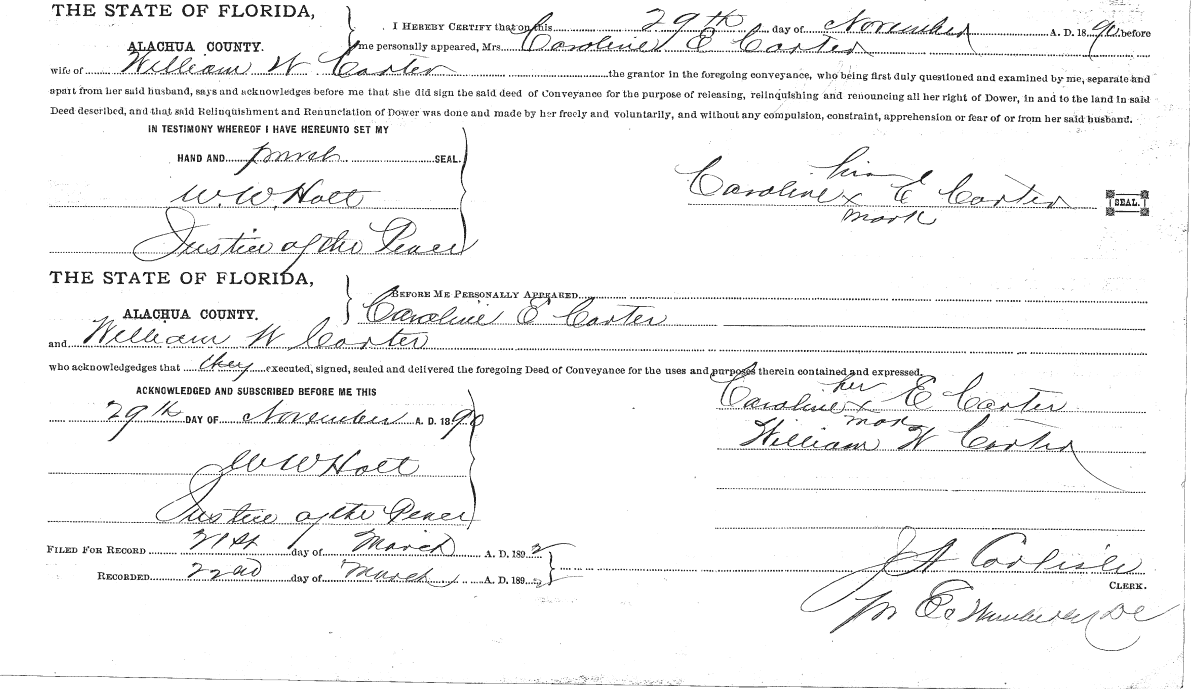 THE STATE OF FLORIDA,
ALACHUA COUNTY.
I HEREBY CERTIFY that on this 29th day of November A. D. 1890, before
me personally appeared, Mrs. Caroline E Carter
wife of William W Carter the grantor in the foregoing conveyance, who being first duly questioned and examined by me, separate and
apart from her said husband, says and acknowledges before me that she did sign the said deed of Conveyance for the purpose of releasing, relinquishing and renouncing all her right of Dower, in and to the land in said
Deed described, and that said Relinquishment and Renunciation of Dower was done and made by her freely and voluntarily, and without any compulsion, constraint, apprehension or fear of or from her said husband.
IN TESTIMONY WHEREOF I HAVE HEREUNTO SET MY
HAND AND SEAL.
W. W. Holt
Justice of the Peace
Caroline x E Carter
mark
SEAL.
THE STATE OF FLORIDA,
ALACHUA COUNTY.
BEFORE ME PERSONALLY APPEARED
Caroline E Carter
and William W Carter
who acknowledges that they executed, signed, sealed and delivered the foregoing Deed of Conveyance for the uses and purposes therein contained and expressed.
ACKNOWLEDGED AND SUBSCRIBED BEFORE ME THIS
29th DAY OF November A. D. 1890
W W Holt
Justice of the Peace
her
Caroline x E Carter
mark
William W Carter
FILED FOR RECORD 21st day of March A. D. 1892
RECORDED 22nd day of March A. D. 1892
J A Carlisle
CLERK.
DC